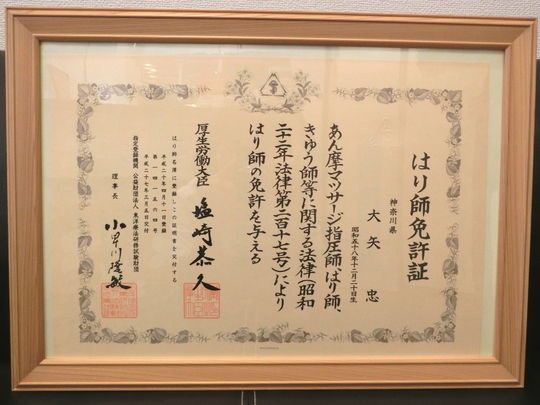 はり師免許証
神奈川県
大矢 忠
昭和五十八年十二月二十日生
あん摩マツサージ指圧師、はり師、
きゆう師等に関する法律(昭和
二十二年法律第二百十七号)により
はり師の免許を与える
厚生労働大臣 塩崎恭久
はり師名簿に登録しこの証明書を交付する
平成二十年四月十一日登録
平成二十七年三月五日交付
指定登録機関 公益財団法人 東洋療法研修試験財団
理事長 小早川隆敏